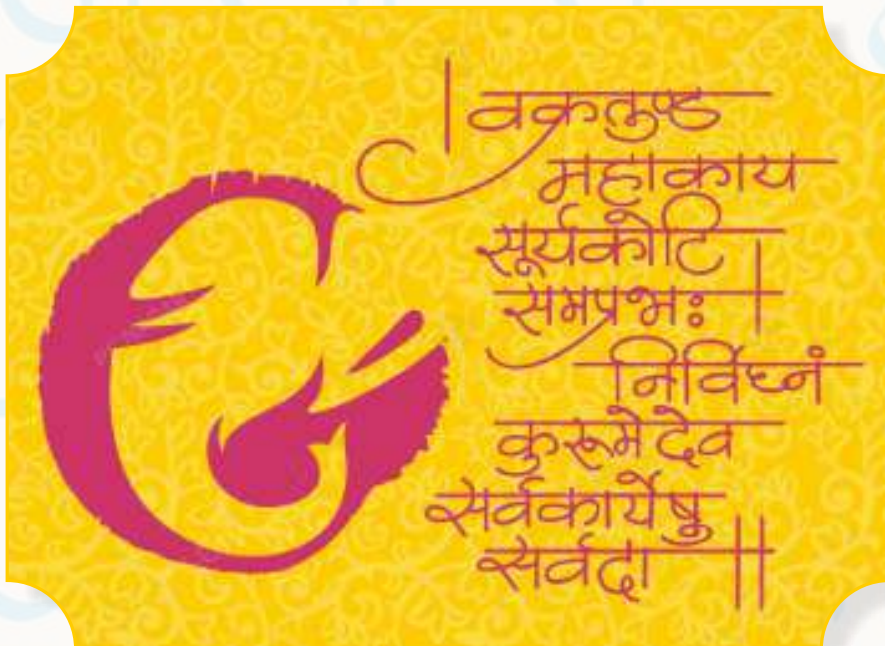 ।वक्रतुण्ड
महाकाय
सूर्यकोटि
समप्रभः।
निर्विघ्नं
कुरूमेदेव
सर्वकार्येषु
सर्वदा॥